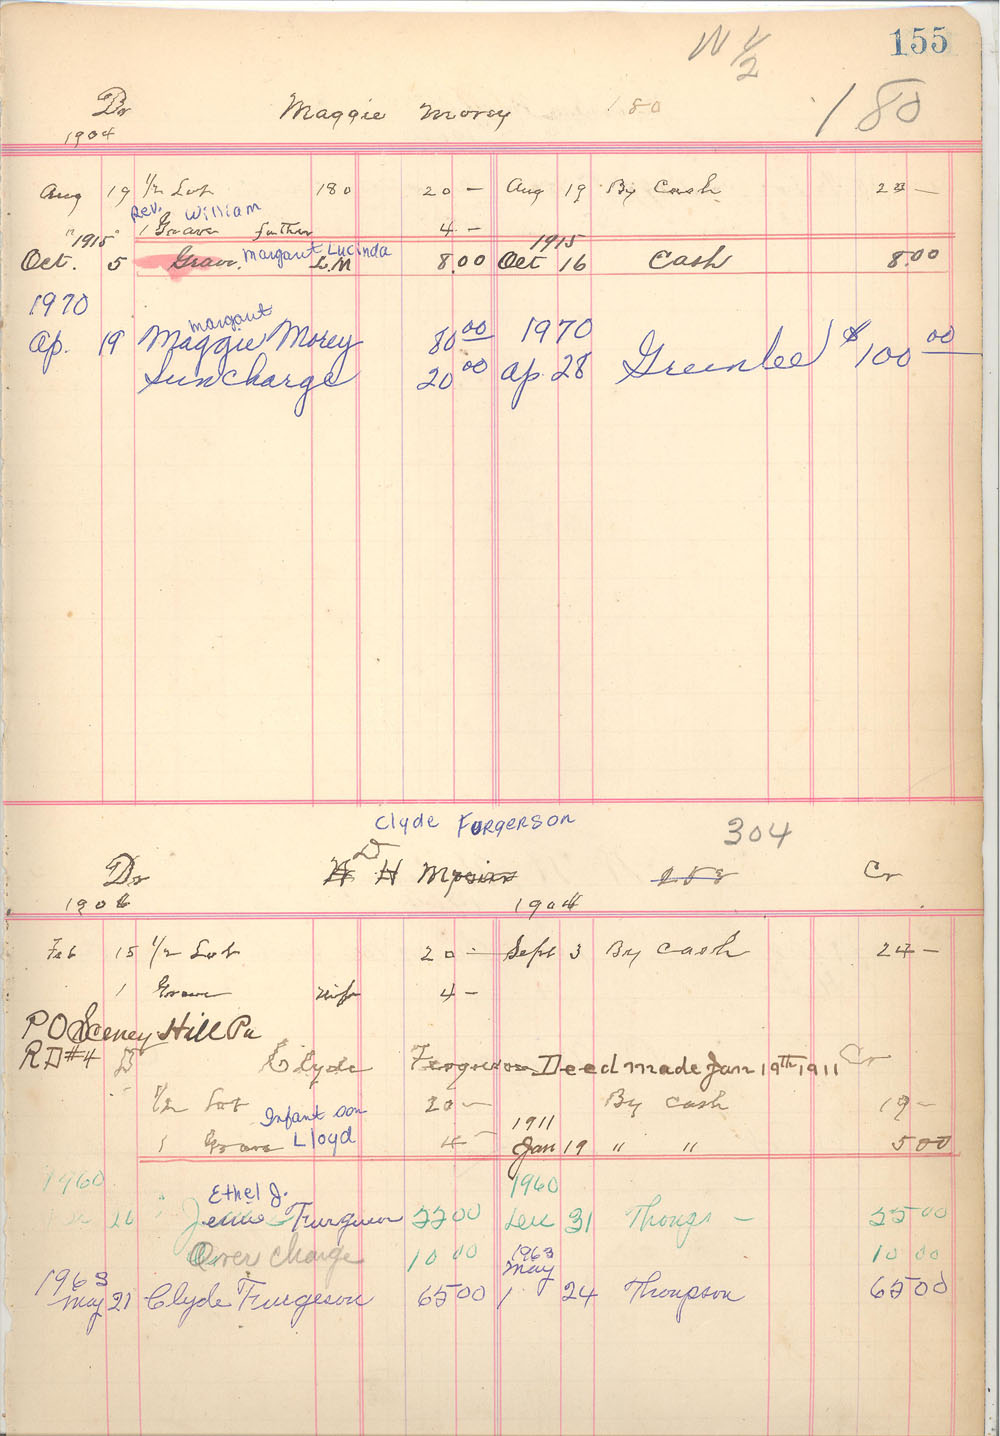 155
W 1/2
180
Dr Maggie Morey 180
1904
Aug 19 1/2 Lot 180 20 - Aug 19 By Cash 24 -
Rev. William
" 1 Grave father 4 -
1915 1915
Oct. 5 Grave Margaret Lucinda L.M 8.00 Oct 16 Cash 8.00
1970
Margaret
Ap. 19 Maggie Morey 80 00 1970
Surcharge 20 00 Ap. 28 Greenlee $100 00
Clyde Furgerson 304
Dr W H Cr
1904 1904
Feb 15 1/2 Lot 20 - Sept 3 By Cash 24 -
1 Grave wife 4 -
P O Scenery Hill Pa
RD #4 D Clyde Ferguson Deed made Jan 19th 1911 Cr
1/2 Lot 20 - By Cash 19 -
Infant son 1911
1 Grave Lloyd 4 - Jan 19 " " 5 00
1960 1960
Ethel J.
26 Furguson 55 00 Dec 31 - 55 00
Over charge 10 00 10 00
1963 1963
May
May 21 Clyde Furgeson 65 00 1 24 Thompson 65 00